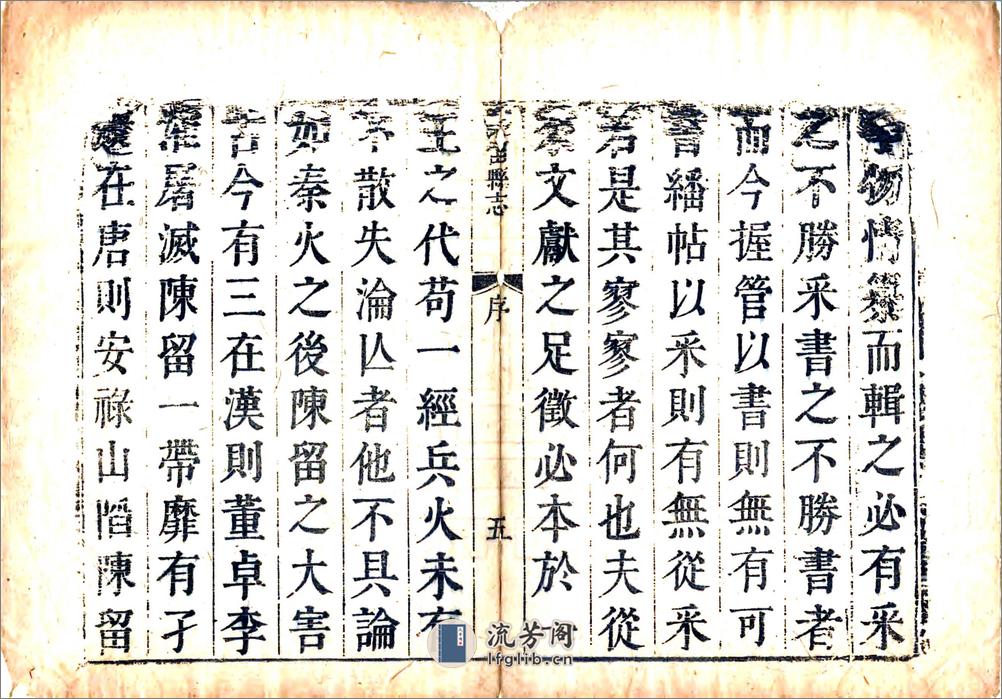 物情彙而輯之必有采
之不勝采書之不勝書者
而今握管以書則無有可
書繙帖以采則有無從采
若是其寥寥者何也夫從
來文獻之足徵必本於
留縣志
序
五
王之代苟一經兵火未有
不散失淪亾者他不具論
如秦火之後陳留之大害
古今有三在漢則董卓李
傕屠滅陳留一帶靡有孑
遺在唐則安祿山陷陳留
流芳阁
lfglib.cn